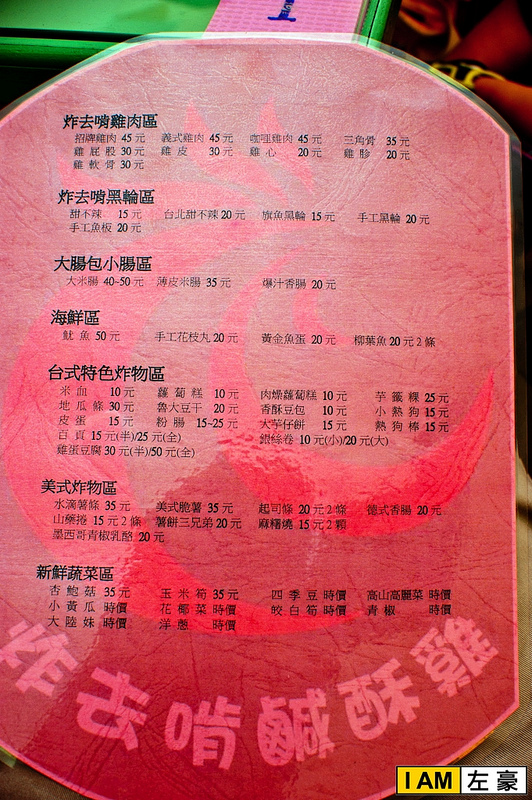 炸去啃雞肉區
招牌雞肉 45 元 義式雞肉 45 元 咖哩雞肉 45 元 三角骨 35 元
雞屁股 30 元 雞皮 30 元 雞心 20 元 雞胗 20 元
雞軟骨 30 元
炸去啃黑輪區
甜不辣 15 元 台北甜不辣 20 元 旗魚黑輪 15 元 手工黑輪 20 元
手工魚板 20 元
大腸包小腸區
大米腸 40~50 元 薄皮米腸 35 元 爆汁香腸 20 元
海鮮區
魷魚 50 元 手工花枝丸 20 元 黃金魚蛋 20 元 柳葉魚 20 元 2 條
台式特色炸物區
米血 10 元 蘿蔔糕 10 元 肉燥蘿蔔糕 10 元 芋籤粿 25 元
地瓜條 30 元 魯大豆干 20 元 香酥豆包 10 元 小熱狗 15 元
皮蛋 15 元 粉腸 15~25 元 大芋仔餅 15 元 熱狗棒 15 元
百頁 15 元(半)/25 元(全) 銀絲卷 10 元(小)/20 元(大)
雞蛋豆腐 30 元(半)/50 元(全)
美式炸物區
水滴薯條 35 元 美式脆薯 35 元 起司條 20 元 2 條 德式香腸 20 元
山藥捲 15 元 2 條 薯餅三兄弟 20 元 麻糬燒 15 元 2 顆
墨西哥青椒乳酪 20 元
新鮮蔬菜區
杏鮑菇 35 元 玉米筍 35 元 四季豆 時價 高山高麗菜 時價
小黃瓜 時價 花椰菜 時價 皎白筍 時價 青椒 時價
大陸妹 時價 洋蔥 時價
炸去啃鹹酥雞
I AM 左豪